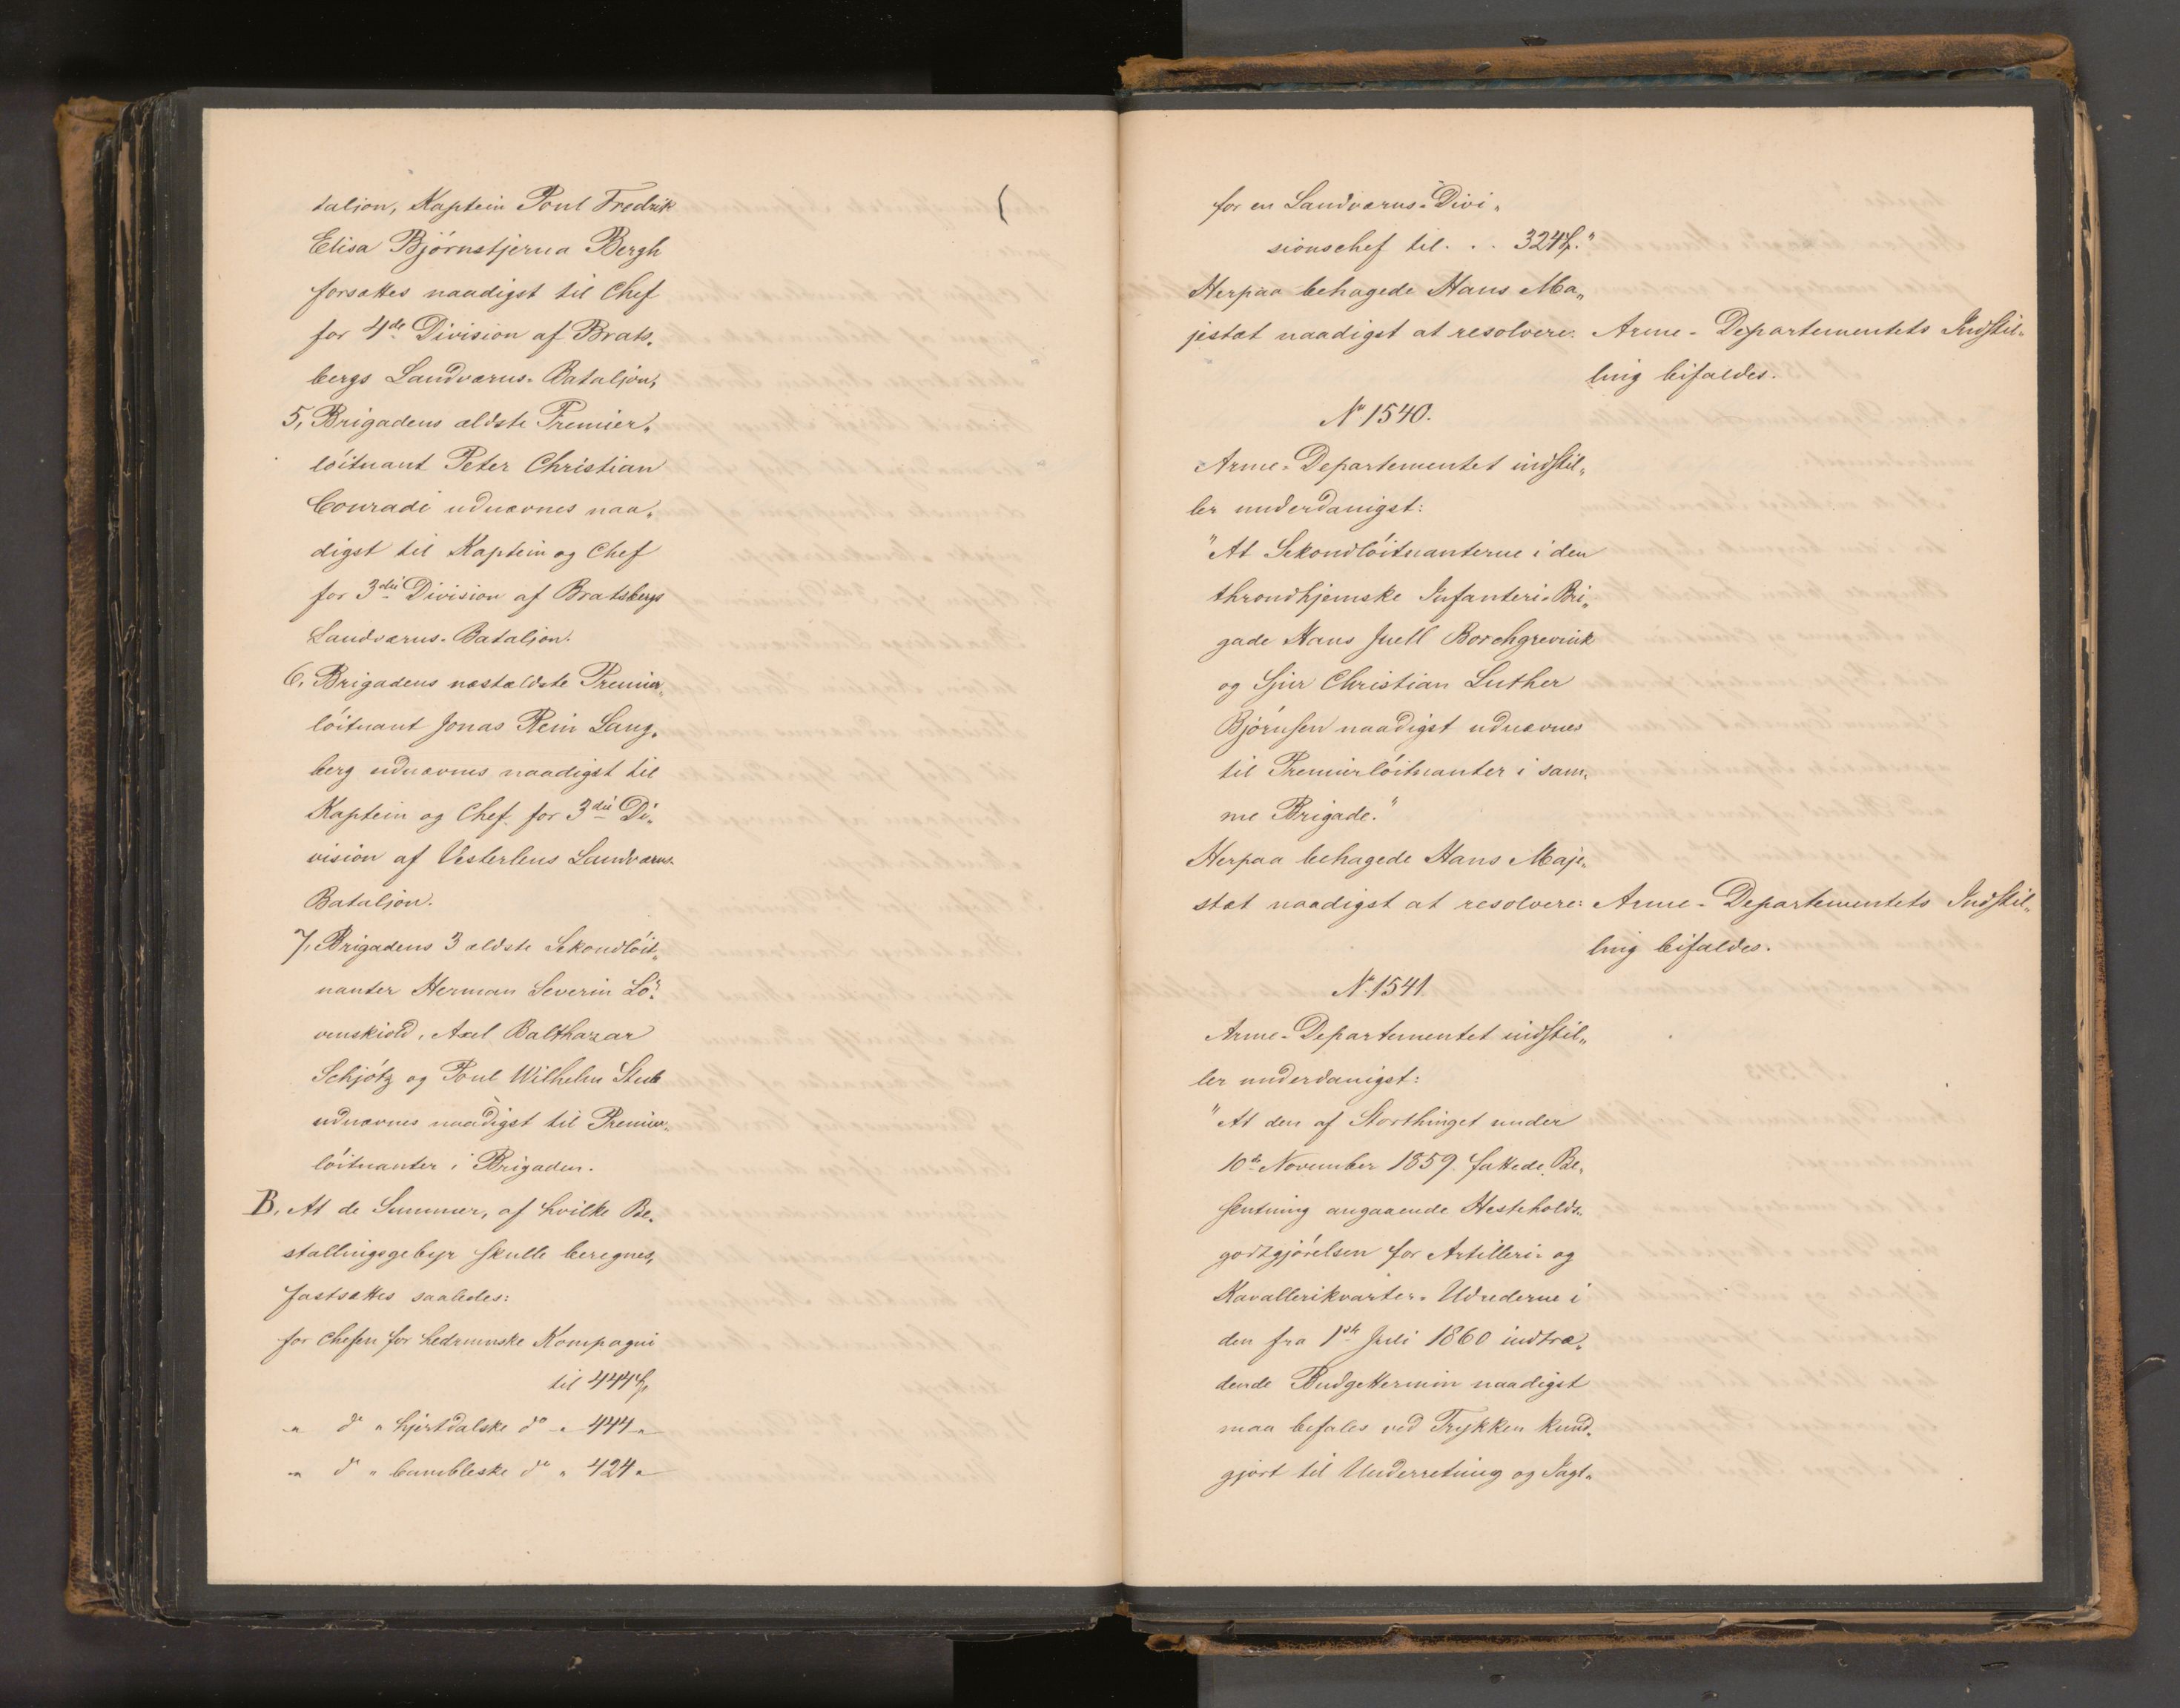 taljon, Kaptein Poul Fredrik
Elisa Björnstjerna Bergh
forsættes naadigst til Chef
for 4de Division af Brats„
bergs Landværns-Bataljon,
5, Brigadens ældste Premier„
löitnant Peter Christian
Conradi udnævnes naa„
digst til Kaptein og Chef
for 3die Division af Bratsbergs
Landværns-Bataljon.
6, Brigadens næstældste Premier„
löitnant Jonas Rein Lang„
berg udnævnes naadigst til
Kaptein og Chef for 3die Di„
vision af Vesterlens Landværns-
Bataljon.
7, Brigadens 3 ældste Sekondlöit„
nanter Herman Severin Lö„
venskiold, Axel Balthazar
Schjötz og Poul Wilhelm Stub
udnævnes naadigst til Premier„
löitnanter i Brigaden.
B, At de Summer, af hvilke Be„
stallingsgebyr skulle beregnes,
fastsættes saaledes:
for Chefen for hedrumske Kompagni
til 444 Sp.
„ do „ hjertdalske do „ 444 „
„ do „ bambleske do „ 424 „
for en Landværns-Divi„
sionschef til . . . 324 Sp."
Herpaa behagede Hans Ma„
jestæt naadigst at resolvere: Arme-Departementets Indstil„
ling bifaldes.
No 1540.
Arme-Departementet indstil„
ler underdanigst:
"At Sekondlöitnanterne i den
throndhjemske Infanteri-Bri„
gade Hans Juell Borchgrevink
og Sjur Christian Luther
Björnsen naadigst udnævnes
til Premierlöitnanter i sam„
me Brigade."
Herpaa behagede Hans Maje„
stæt naadigst at resolvere: Arme-Departementets Indstil„
ling bifaldes.
No 1541.
Arme-Departementet indstil„
ler underdanigst:
"At den af Storthinget under
10de November 1859 fattede Be„
slutning angaaende Hesteholds„
godtgjörelsen for Artilleri- og
Kavallerikvarter-Udrederne i
den fra 1ste Juli 1860 indtræ„
dende Budgettermin naadigst
maa befales ved Trykken kund„
gjort til Underretning og Iagt„